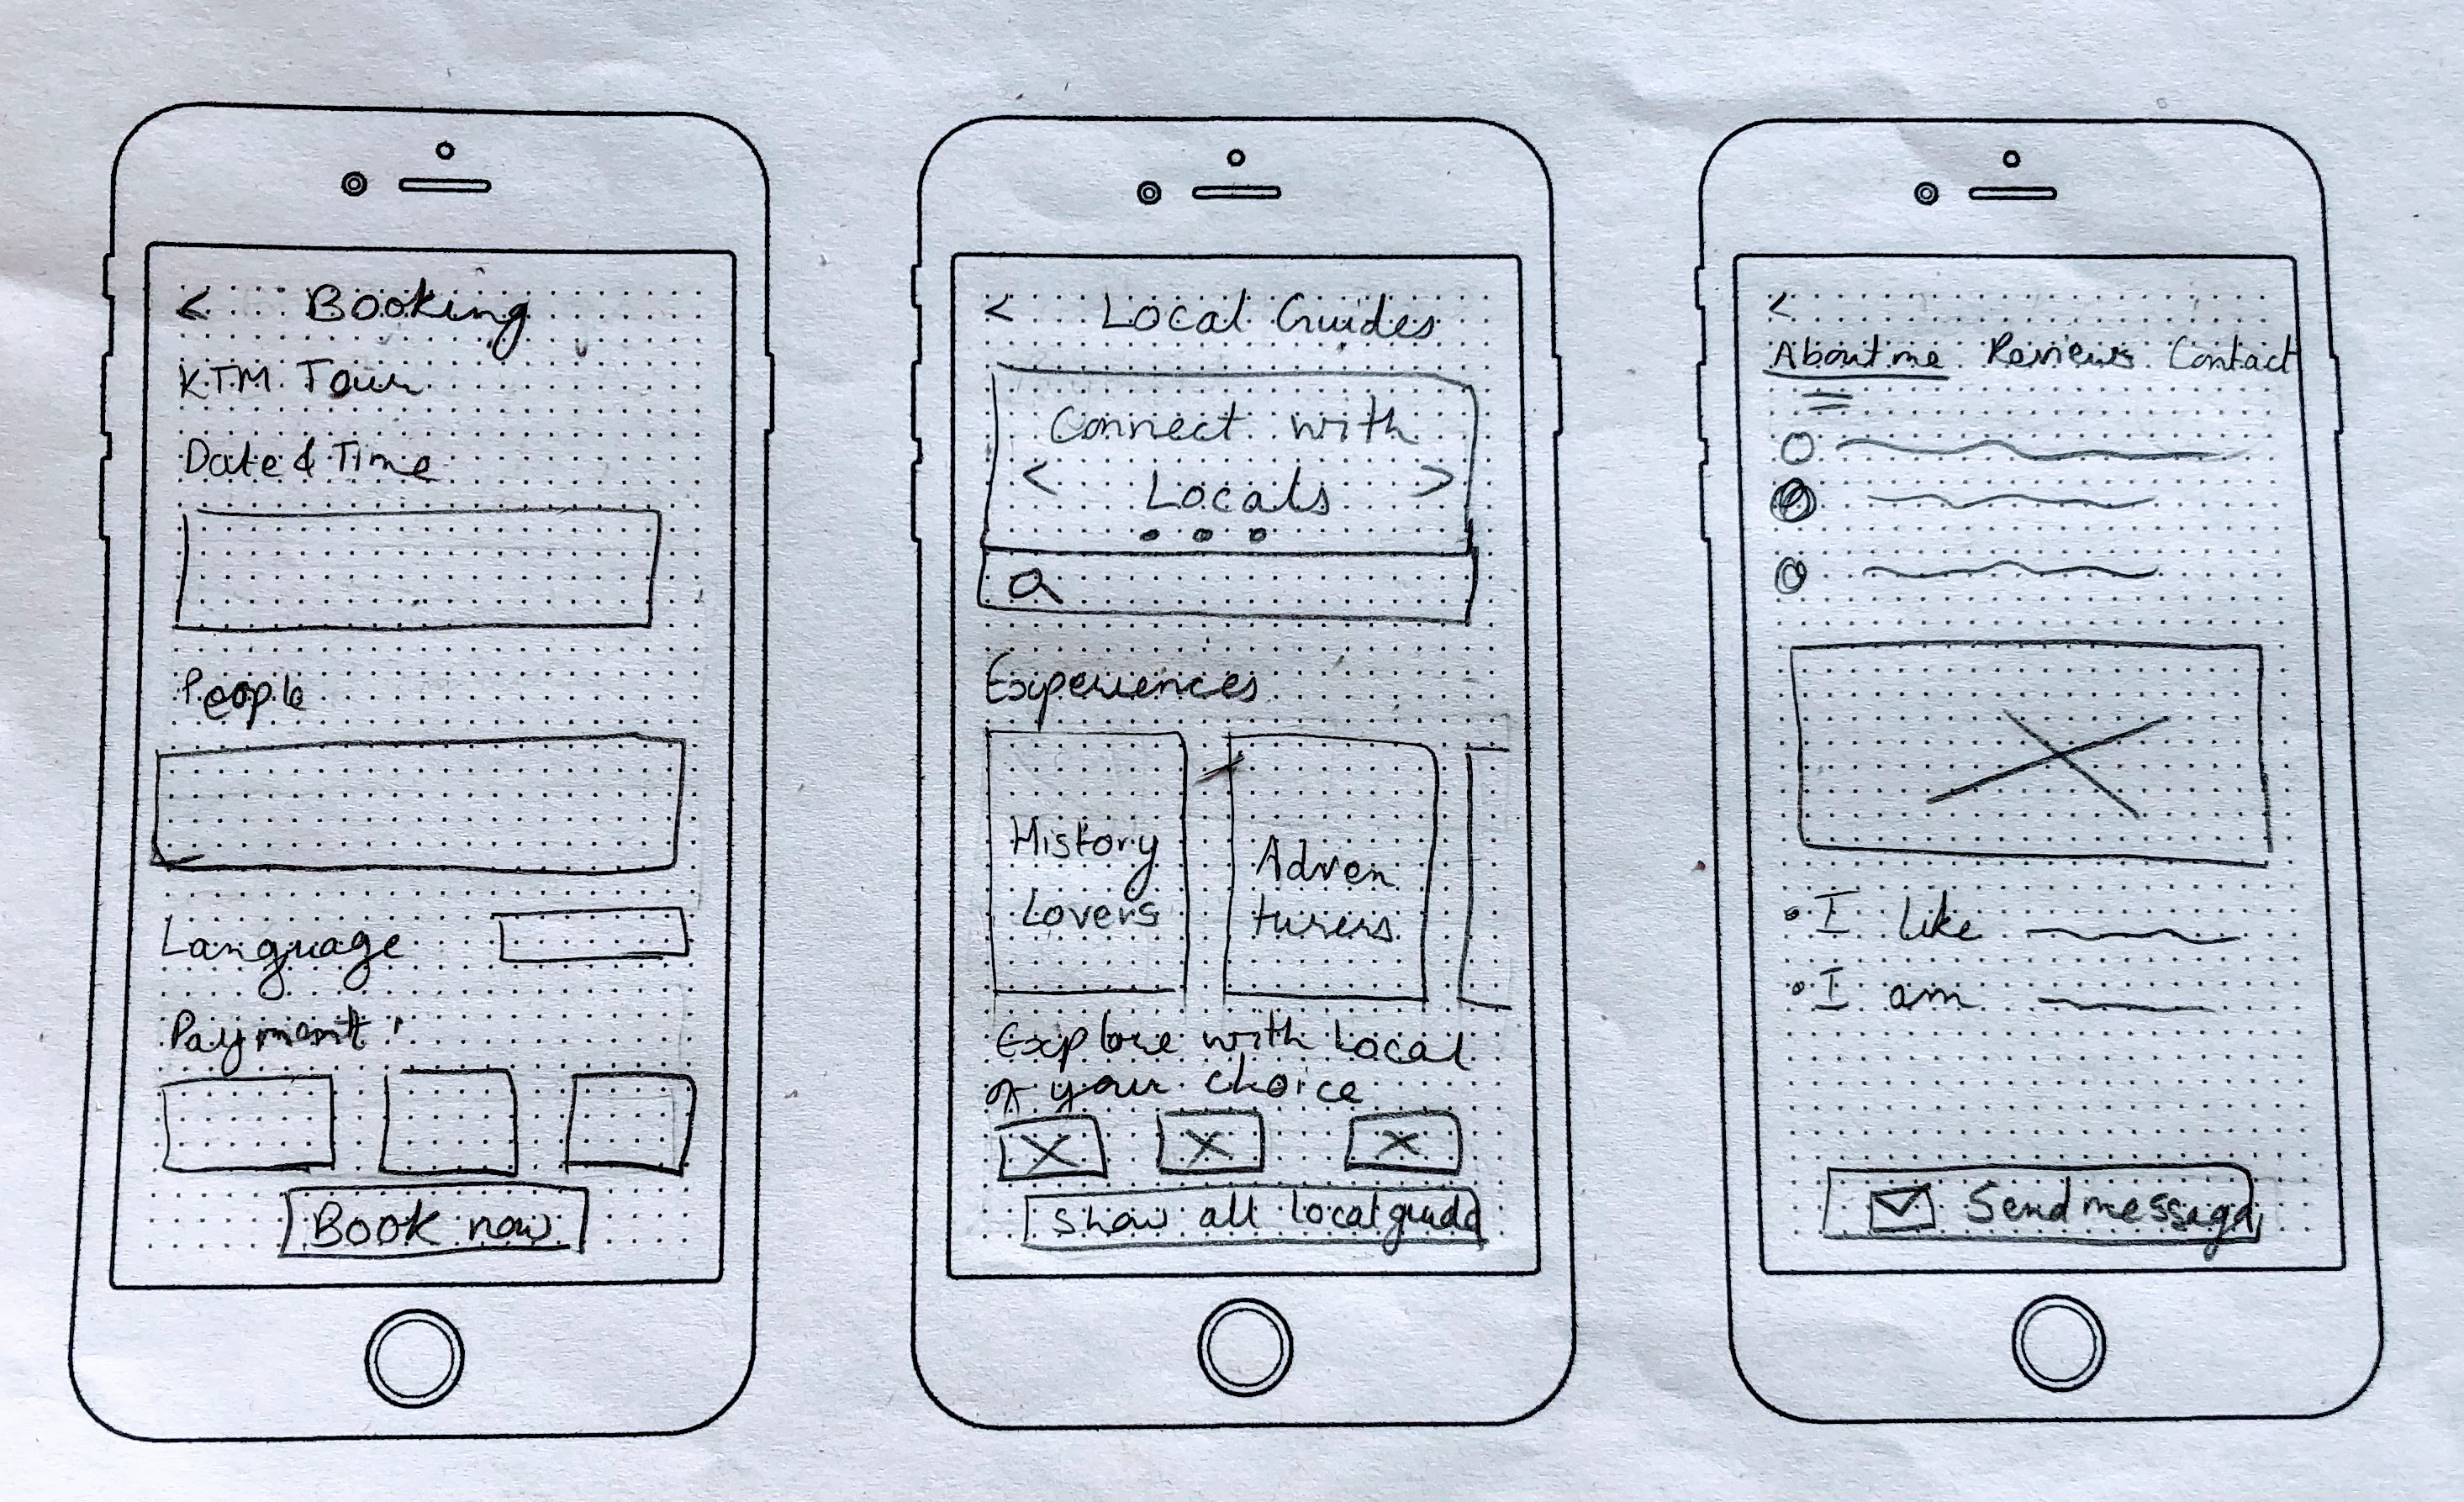 < Booking
KTM Tour
Date & Time
People
Language
Payment
Book now
< Local Guides
Connect with
< Locals >
Experiences
History
Lovers
Adven
turers
Explore with Local
of your choice
Show all local guide
<
About me Reviews Contact
I like
I am
Send message